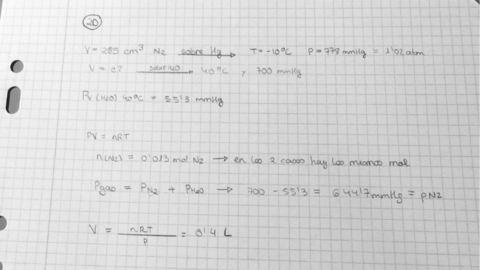 20
V = 285 cm³ N2 sobre Hg → T = -10ºC P = 778 mmHg = 1'02 atm
V = ¿? sobre H2O → 40ºC y 700 mmHg
Pv (H2O) 40ºC = 55'3 mmHg
PV = nRT
n(N2) = 0'013 mol N2 → en los 2 casos hay los mismos mol
Pgas = PN2 + PH2O → 700 - 55'3 = 644'7 mmHg = pN2
V = nRT / P = 0'4 L